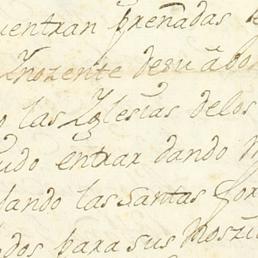 uentran preñadas
Ynozente desu ado
las Yglesias delos
udo entrar dando
ando las Santas for
dos para sus